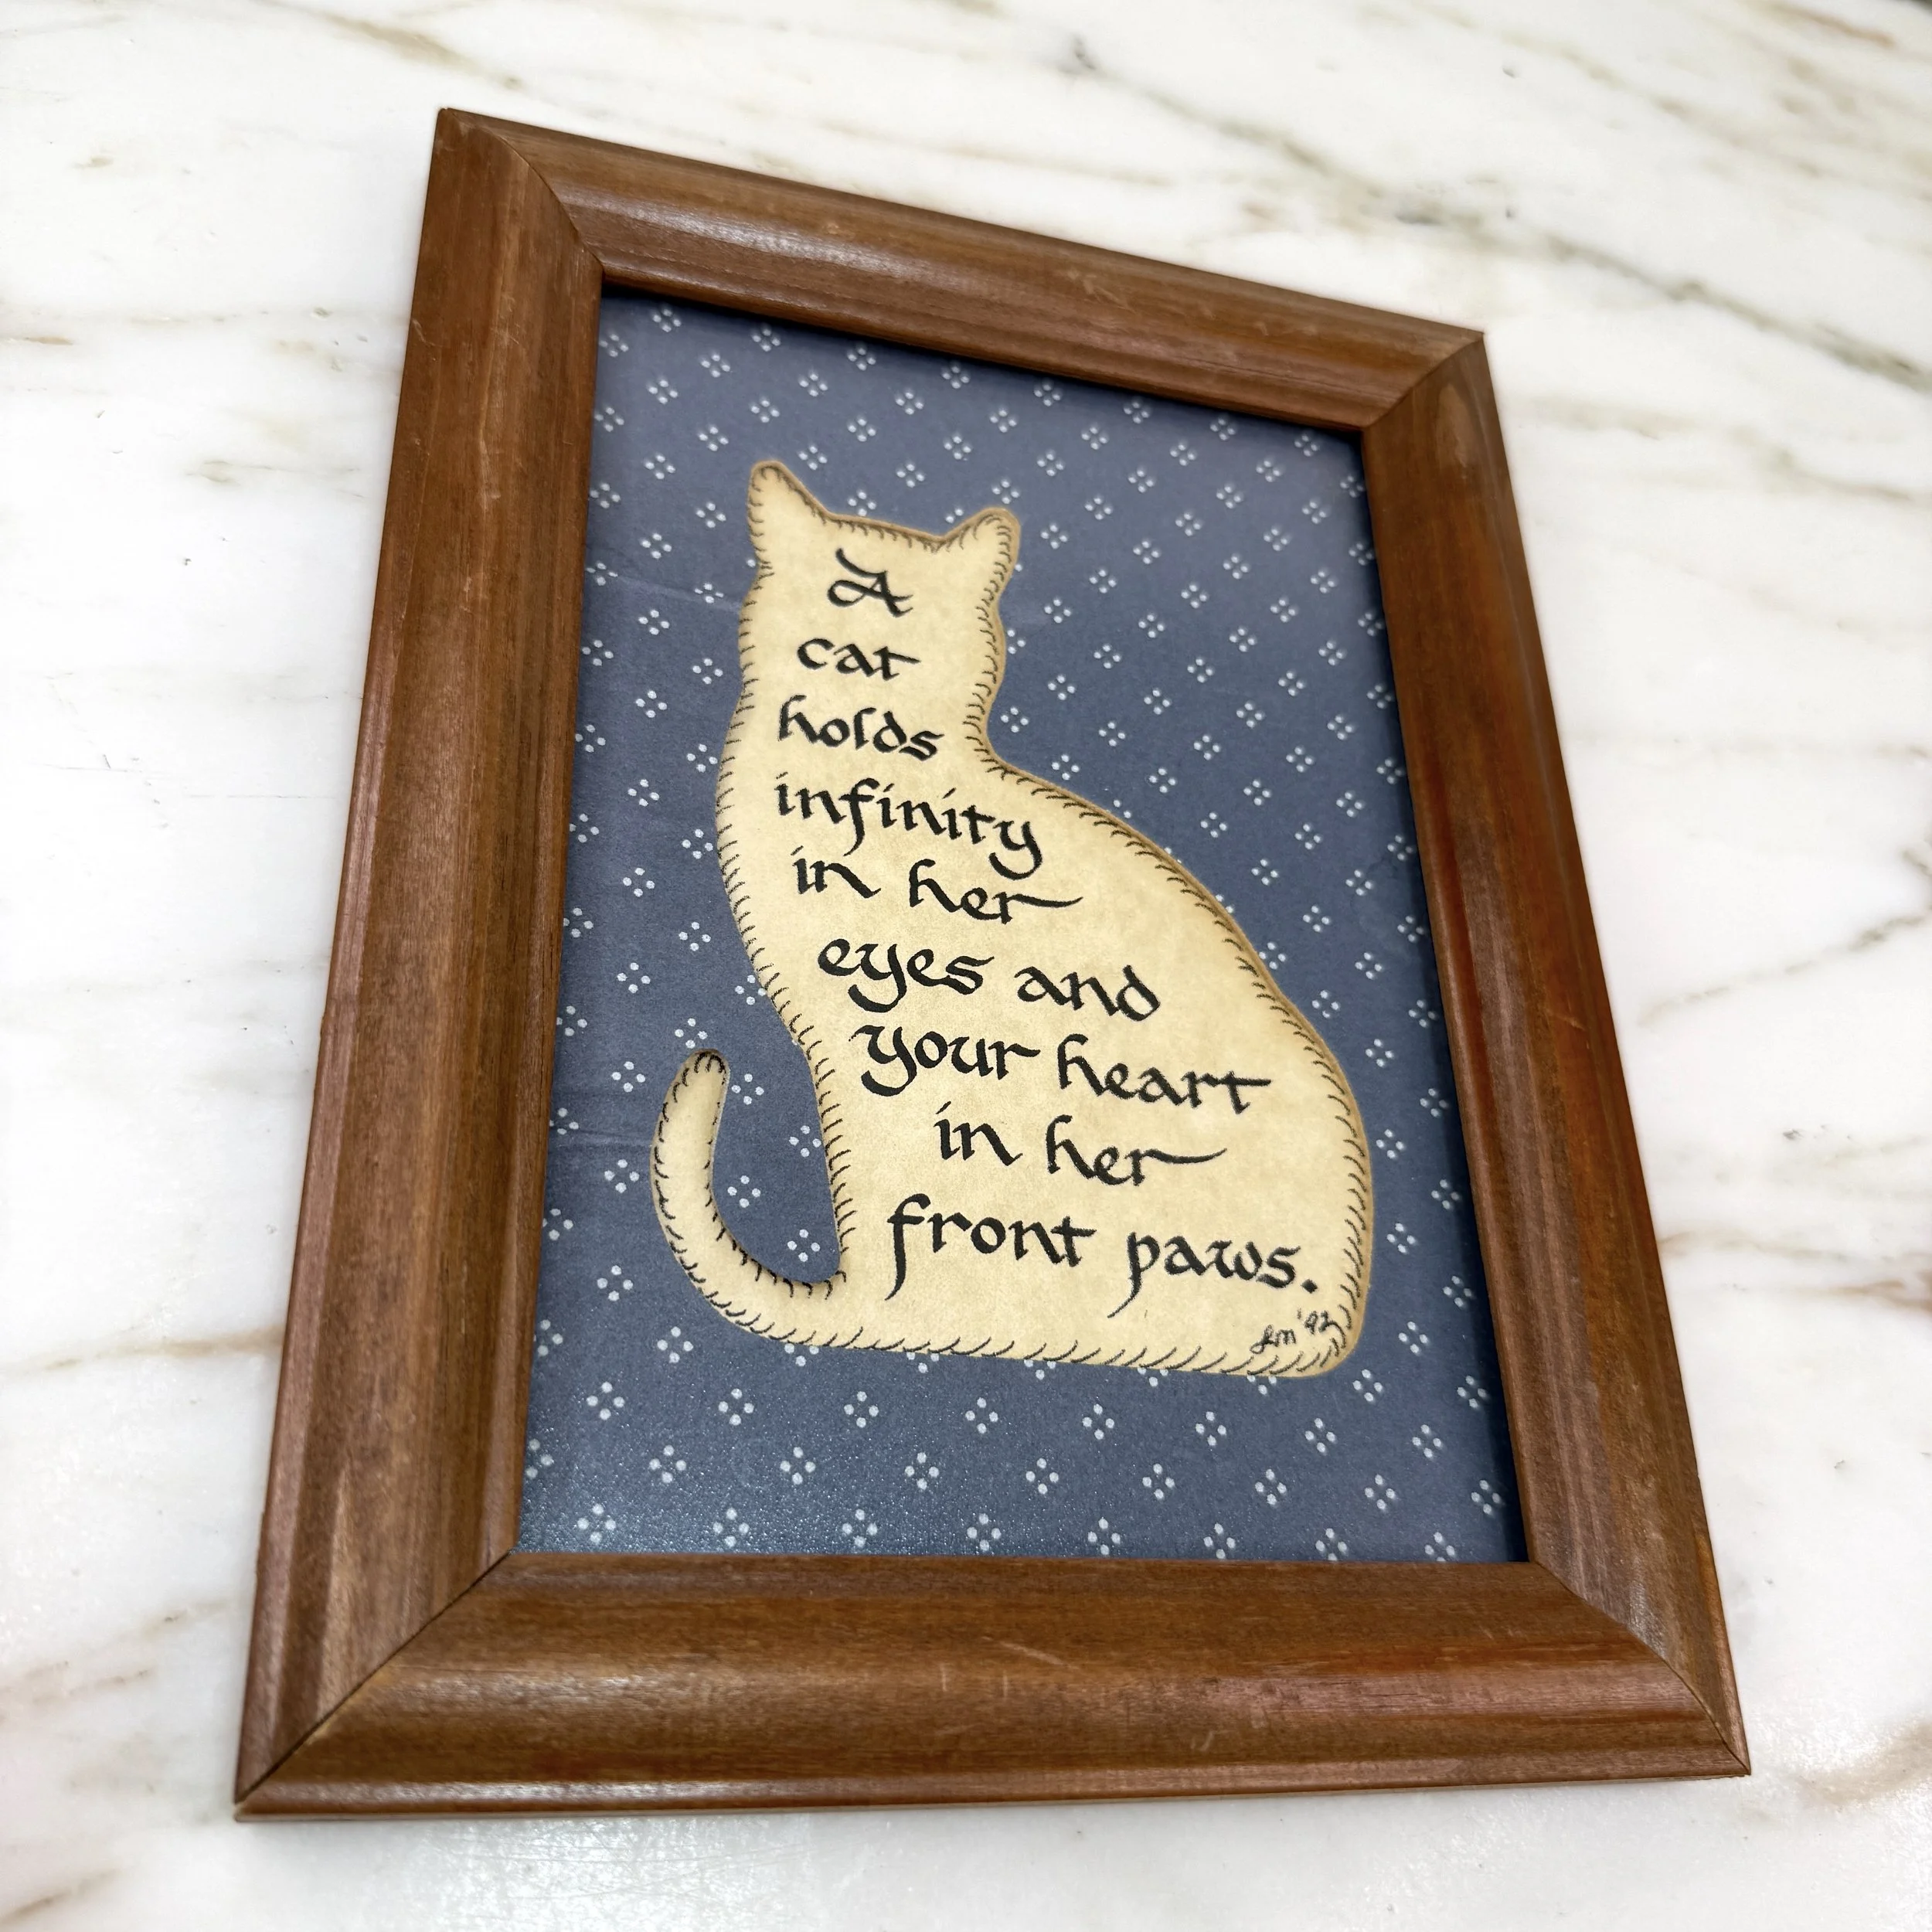 A
cat
holds
infinity
in her
eyes and
your heart
in her
front paws.
LM '92